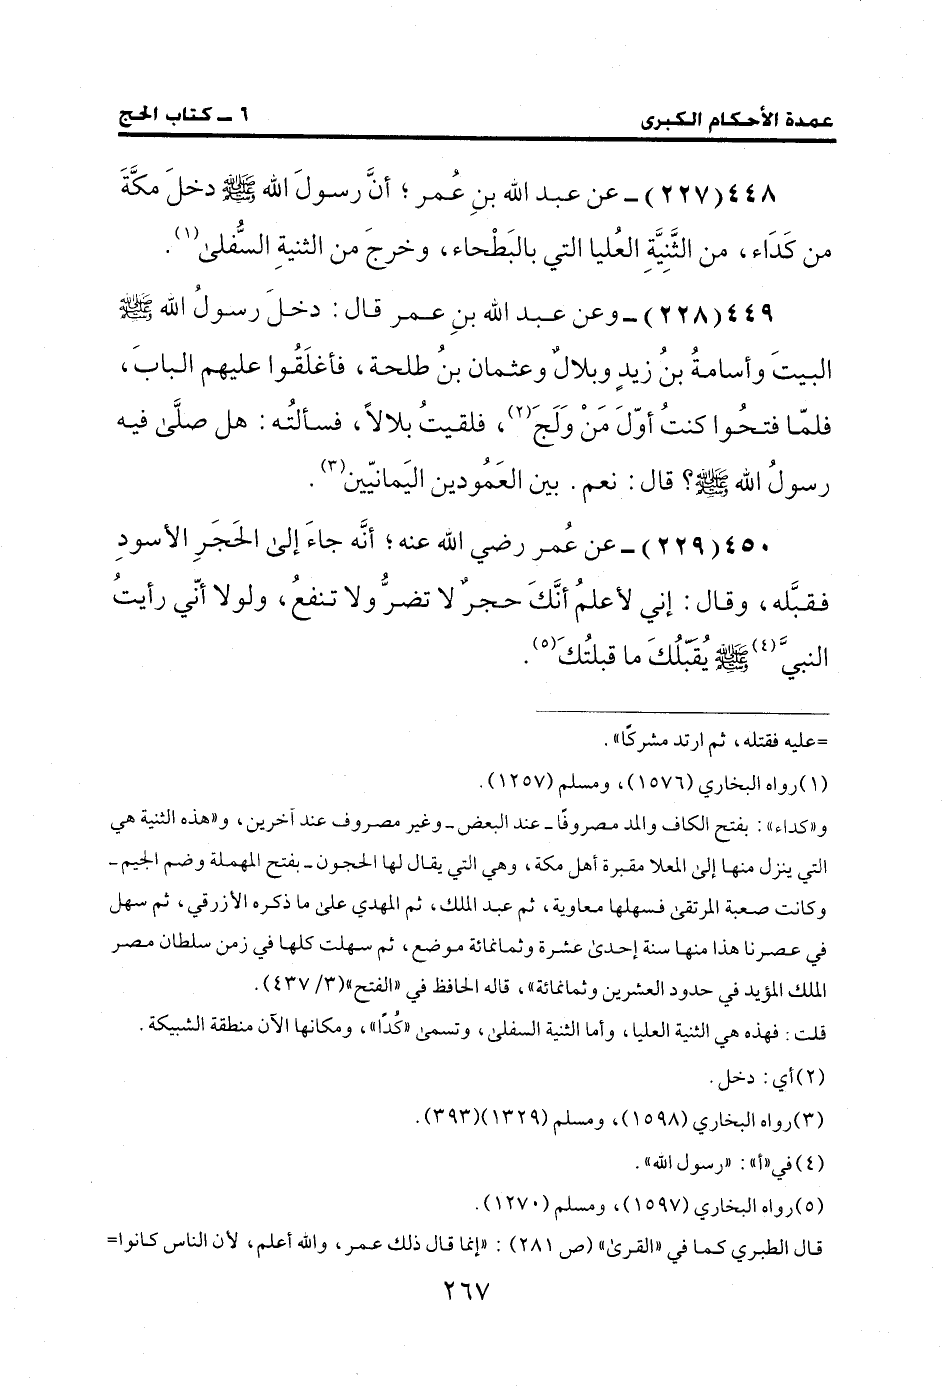 عمدة الأحكام الكبرى
٦ ـ كتاب الحج
٤٤٨(٢٢٧) ـ عن عبد الله بنِ عُمر ؛ أنَّ رسولَ الله ﷺ دخلَ مكَّةَ
من كَدَاء ، من الثَّنِيَّةِ العُليا التي بالبَطْحاء ، وخرجَ من الثنيةِ السُّفلىٰ(١) .
٤٤٩(٢٢٨) ـ وعن عبد الله بنِ عمر قال : دخلَ رسولُ الله ﷺ
البيتَ وأسامةُ بنُ زيدٍ وبلالٌ وعثمان بنُ طلحة ، فأغلَقُوا عليهم البابَ ،
فلمّا فتحُوا كنتُ أوّلَ مَنْ وَلَجَ(٢) ، فلقيتُ بلالاً ، فسألتُه : هل صلَّىٰ فيه
رسولُ الله ﷺ؟ قال : نعم . بين العَمُودين اليَمانيّين(٣) .
٤٥٠(٢٢٩) ـ عن عُمر رضي الله عنه ؛ أنَّه جاءَ إلىٰ الحَجَرِ الأسودِ
فقبَّله ، وقال : إني لأعلمُ أنَّكَ حجرٌ لا تضرُّ ولا تنفعُ ، ولولا أنّي رأيتُ
النبيَّ(٤) ﷺ يُقَبِّلُكَ ما قبلتُكَ(٥) .
=عليه فقتله ، ثم ارتد مشركًا» .
(١) رواه البخاري (١٥٧٦) ، ومسلم (١٢٥٧) .
و«كداء» : بفتح الكاف والمد مصروفًا ـ عند البعض ـ وغير مصروف عند آخرين ، و«هذه الثنية هي
التي ينزل منها إلىٰ المعلا مقبرة أهل مكة ، وهي التي يقال لها الحجون ـ بفتح المهملة وضم الجيم ـ
وكانت صعبة المرتقىٰ فسهلها معاوية ، ثم عبد الملك ، ثم المهدي علىٰ ما ذكره الأزرقي ، ثم سهل
في عصرنا هذا منها سنة إحدىٰ عشرة وثمانمائة موضع ، ثم سهلت كلها في زمن سلطان مصر
الملك المؤيد في حدود العشرين وثمانمائة» ، قاله الحافظ في «الفتح»(٣/ ٤٣٧) .
قلت : فهذه هي الثنية العليا ، وأما الثنية السفلىٰ ، وتسمىٰ «كُدًا» ، ومكانها الآن منطقة الشبيكة .
(٢) أي : دخل .
(٣) رواه البخاري (١٥٩٨) ، ومسلم (١٣٢٩)(٣٩٣) .
(٤) في «أ» : «رسول الله» .
(٥) رواه البخاري (١٥٩٧) ، ومسلم (١٢٧٠) .
قال الطبري كما في «القرىٰ» (ص ٢٨١) : «إنما قال ذلك عمر ، والله أعلم ، لأن الناس كانوا=
٢٦٧